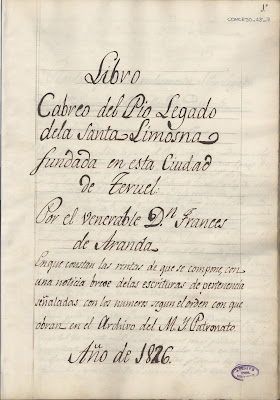 1º
CONCEJO_
Libro
Cabreo del Pio Legado
dela Santa Limosna
fundada en esta Ciudad
de Teruel.
Por el Venerable Dⁿ. Frances
de Aranda
En que constan las rentas de que se compone, con
una noticia breve de las escrituras de pertenencia
señaladas con los numeros segun el orden con que
obran en el Archivo del M. Y. Patronato
Año de 1826.